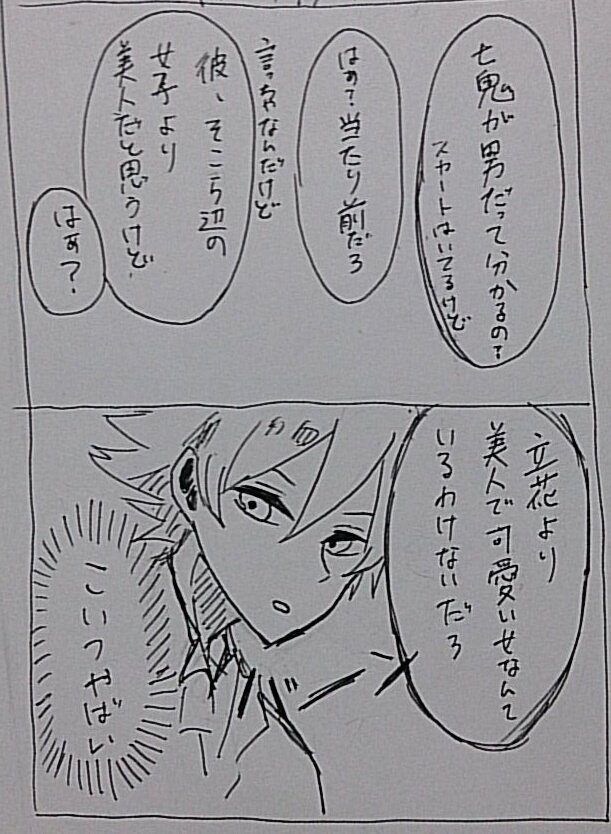 七鬼が男だって分かるの?
スカートはいてるけど
はぁ?当たり前だろ
言っちゃなんだけど
彼、そこら辺の
女子より
美人だと思うけど
はぁ?
立花より
美人で可愛い女なんて
いるわけないだろ
こいつやばい